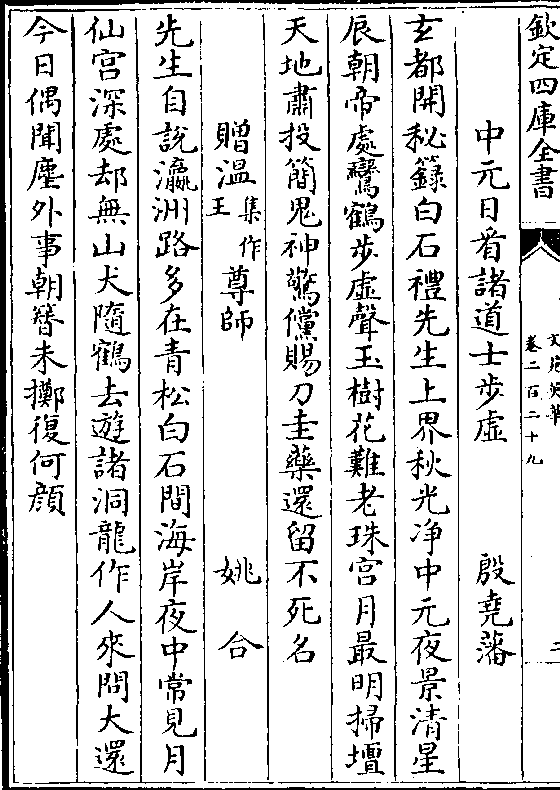 欽定四庫全書
文苑英華
卷二百二十九
中元日㸔諸道士步虛　殷堯藩
玄都開秘籙白石禮先生上界秋光净中元夜景清星
辰朝帝處鸞鶴步虛聲玉樹花難老珠宫月最明掃壇
天地肅投簡鬼神驚儻賜刀圭藥還留不死名
贈温集作王尊師　姚合
先生自說瀛洲路多在青松白石間海岸夜中常見月
仙宫深處却無山犬隨鶴去遊諸洞龍作人來問大還
今日偶聞塵外事朝簪未擲復何顔